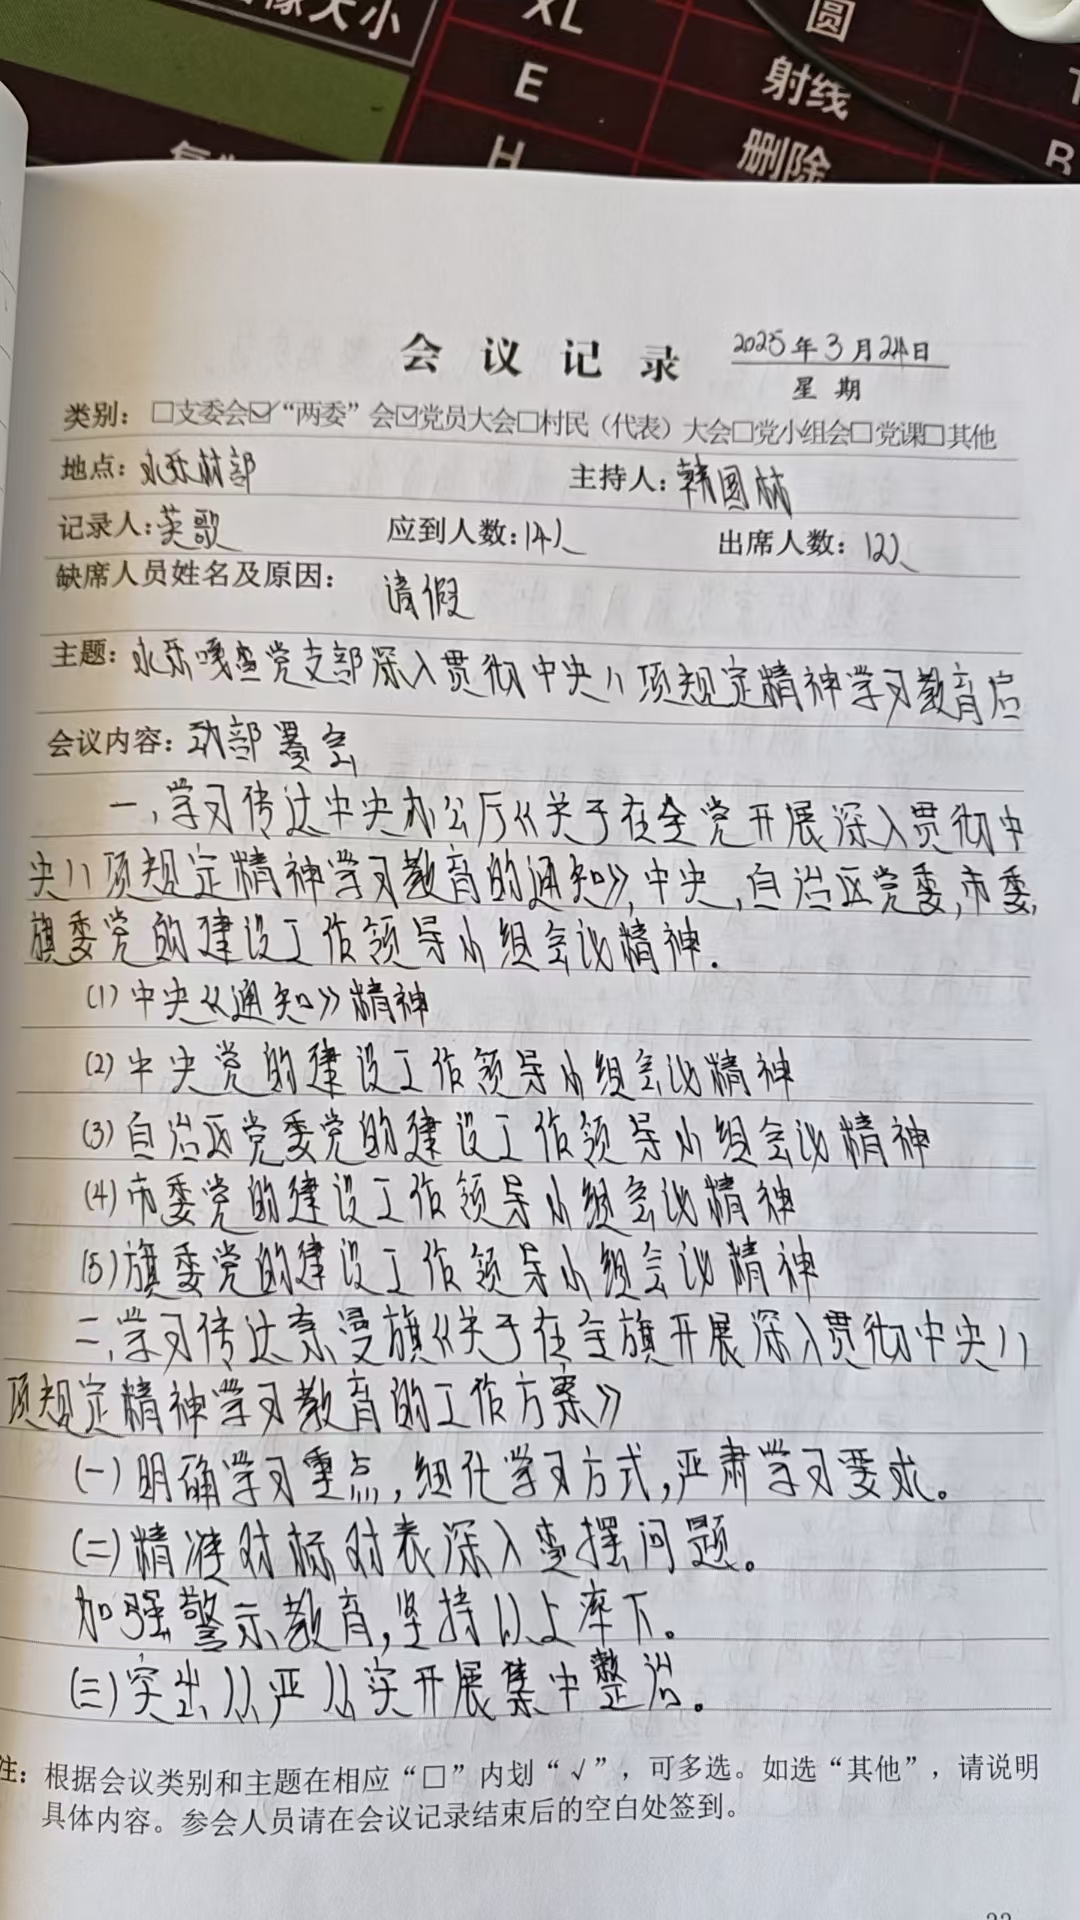 像大小
XL
圆
E
射线
H
删除
B
会议记录
2025年3月24日
星期
类别：□支委会☑“两委”会☑党员大会□村民（代表）大会□党小组会□党课□其他
地点：永乐村部 主持人：韩国林
记录人：英歌 应到人数：14人 出席人数：12人
缺席人员姓名及原因： 请假
主题：永乐嘎查党支部深入贯彻中央八项规定精神学习教育启
会议内容：动部署会
一，学习传达中央办公厅《关于在全党开展深入贯彻中
央八项规定精神学习教育的通知》，中央，自治区党委，市委，
旗委党的建设工作领导小组会议精神.
(1)中央《通知》精神
(2)中央党的建设工作领导小组会议精神
(3)自治区党委党的建设工作领导小组会议精神
(4)市委党的建设工作领导小组会议精神
(5)旗委党的建设工作领导小组会议精神
二，学习传达奈曼旗《关于在全旗开展深入贯彻中央八
项规定精神学习教育的工作方案》
(一)明确学习重点，细化学习方式，严肃学习要求。
(二)精准对标对表深入查摆问题。
加强警示教育，坚持以上率下。
(三)突出从严从实开展集中整治。
注：根据会议类别和主题在相应“□”内划“√”，可多选。如选“其他”，请说明
具体内容。参会人员请在会议记录结束后的空白处签到。